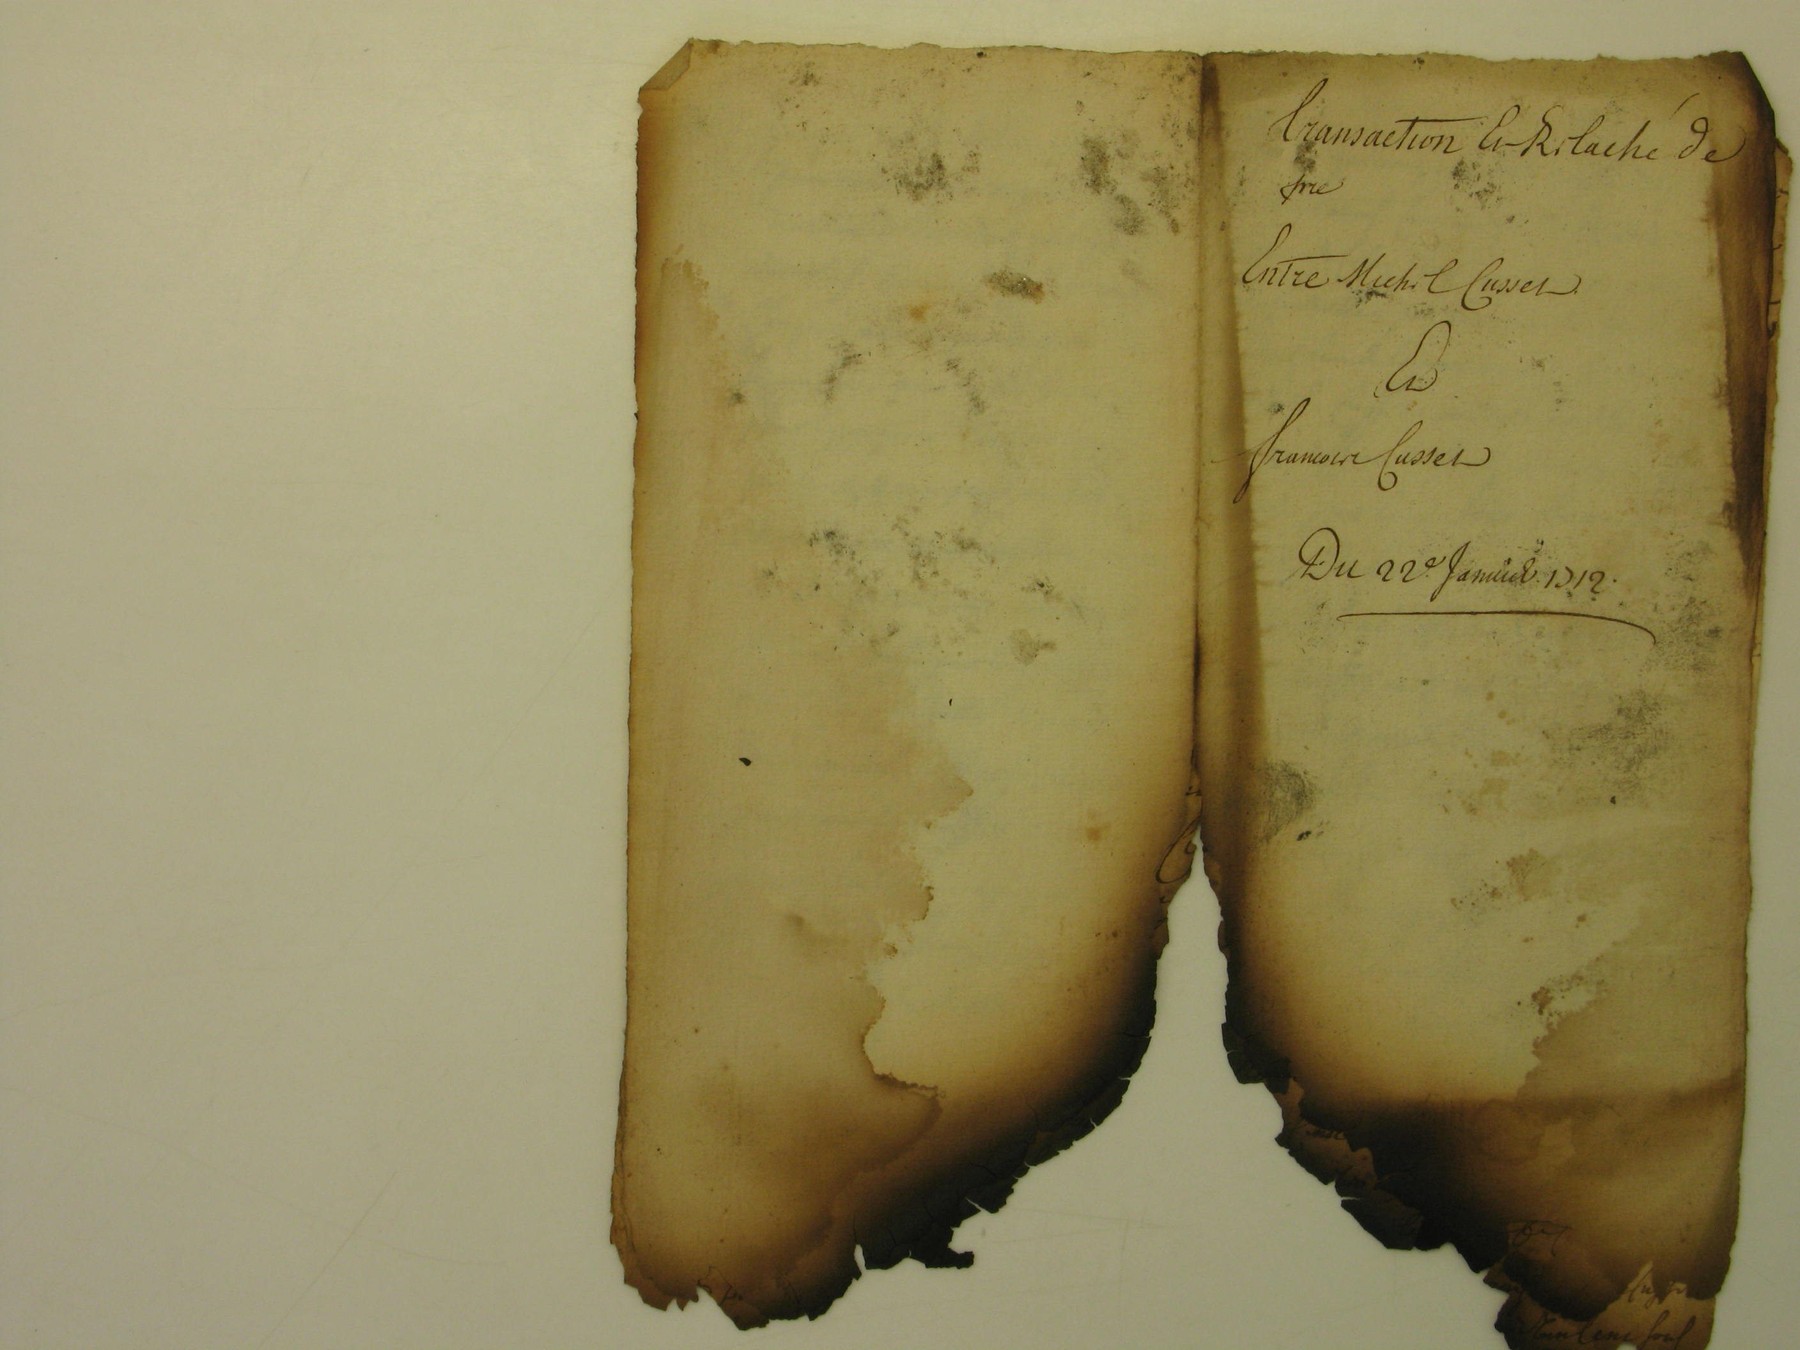 Transaction Et Relaché de
pre
Entre Michel Cusset
Et
francoise Cusset
Du 22e Januier 1712.